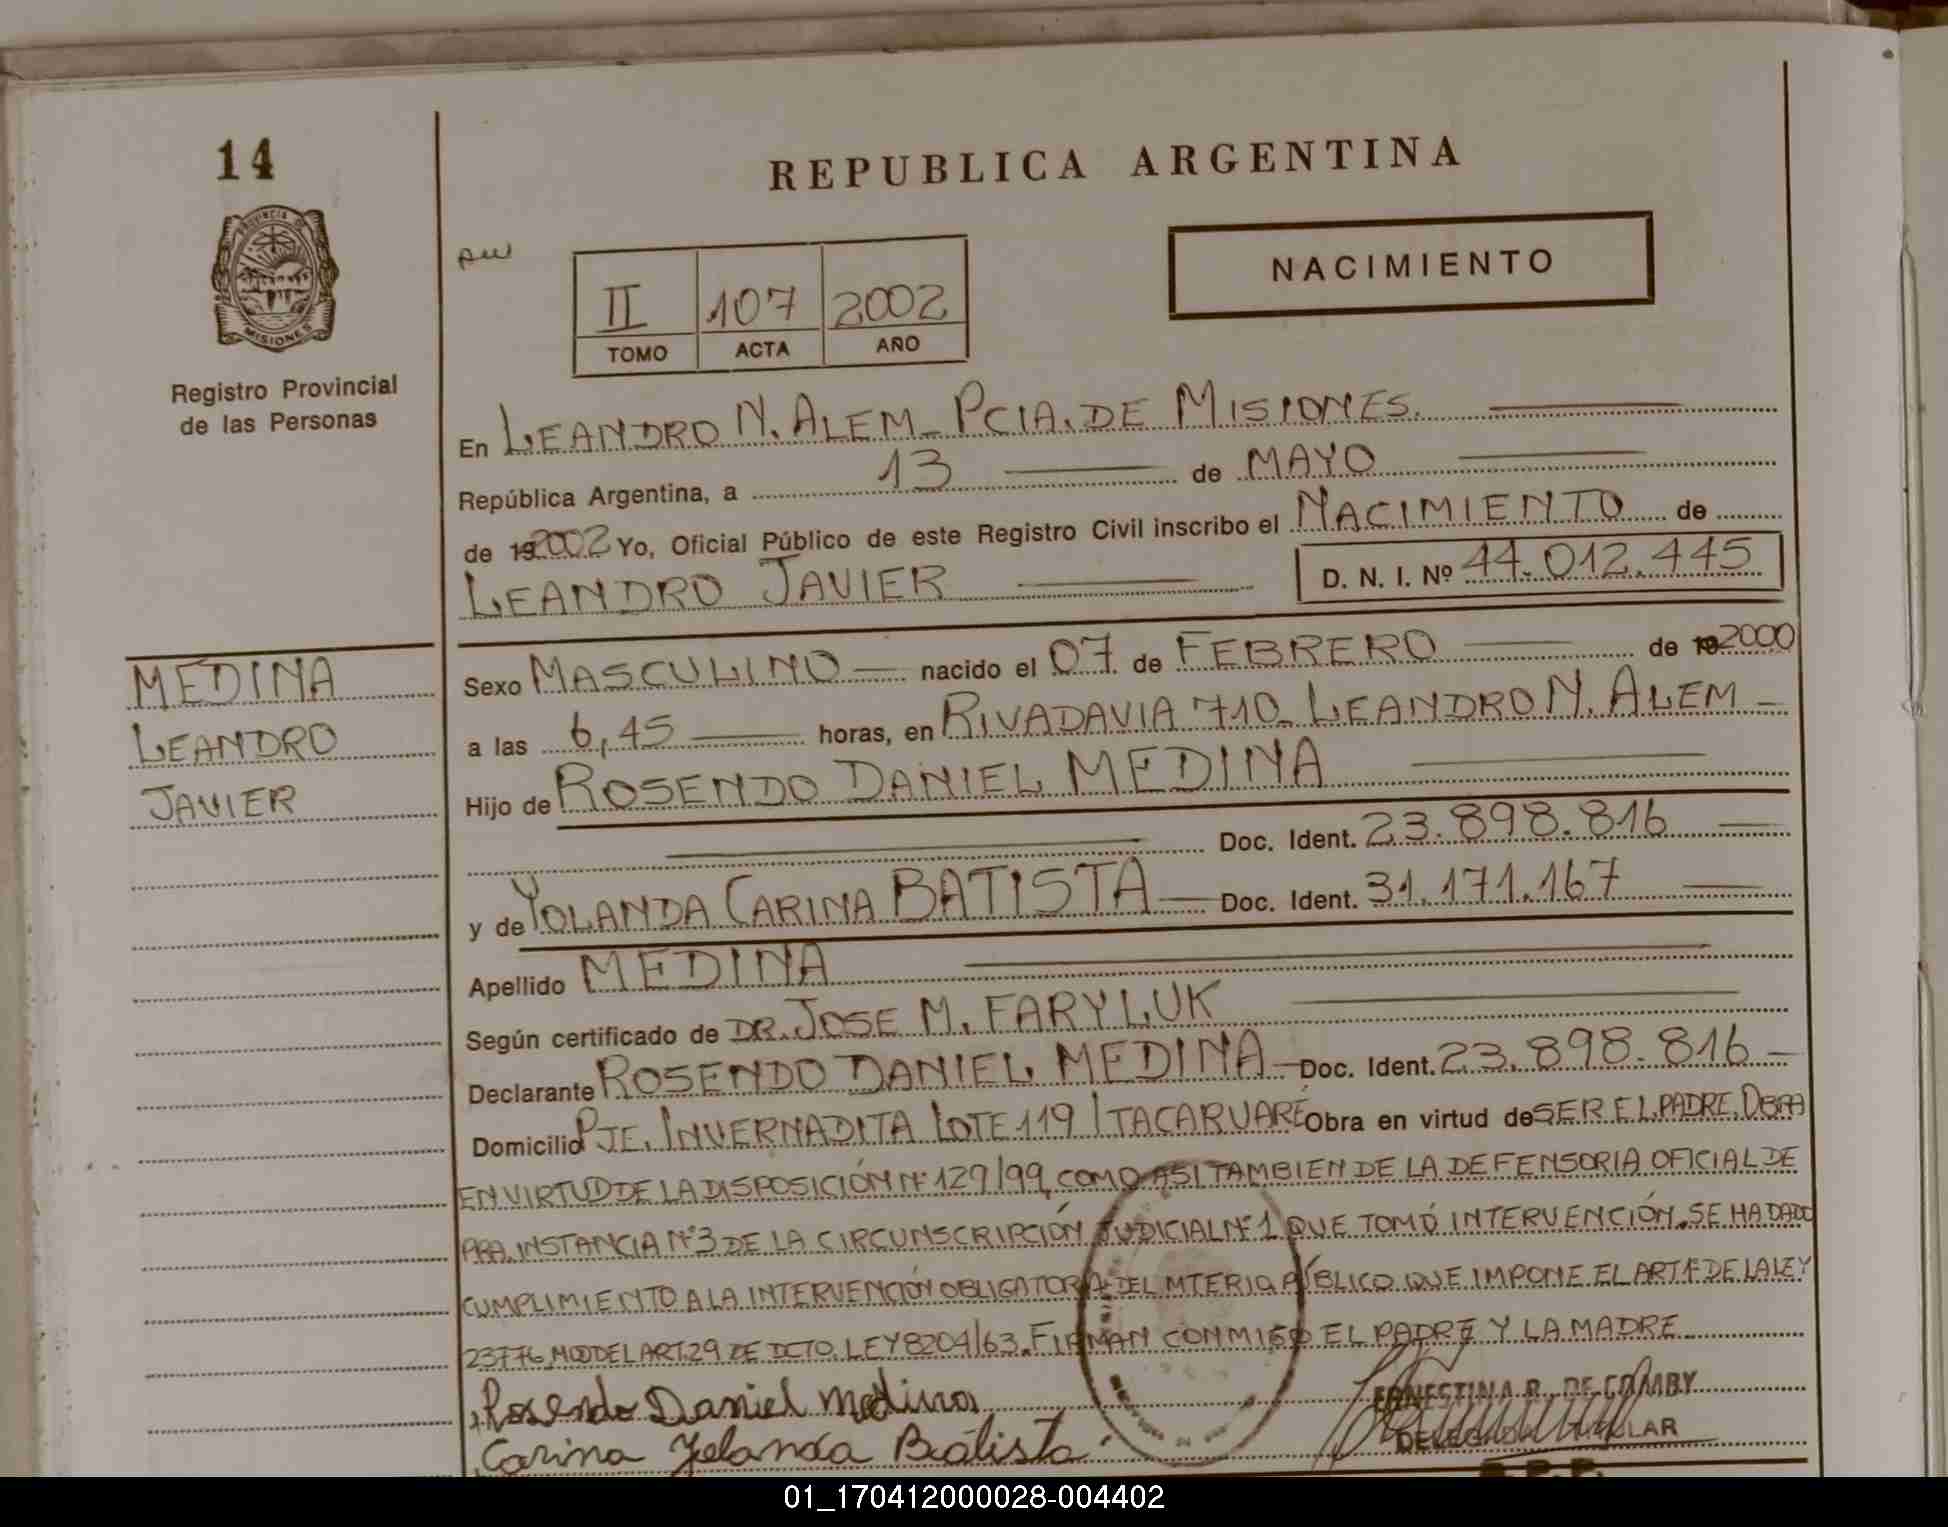 14
REPUBLICA ARGENTINA
PROVINCIA DE
MISIONES
Registro Provincial
de las Personas
NACIMIENTO
II 107 2002
TOMO ACTA AÑO
En LEANDRO N. ALEM_ PCIA. DE MISIONES.
República Argentina, a 13 de MAYO
de 192002 Yo, Oficial Público de este Registro Civil inscribo el NACIMIENTO de
LEANDRO JAVIER D. N. I. Nº 44.012.445
MEDINA
LEANDRO
JAVIER
Sexo MASCULINO nacido el 07 de FEBRERO de 192000
a las 6,45 horas, en RIVADAVIA 710_ LEANDRO N. ALEM
Hijo de ROSENDO DANIEL MEDINA
Doc. Ident. 23.898.816
y de YOLANDA CARINA BATISTA Doc. Ident. 31.171.167
Apellido MEDINA
Según certificado de DR. JOSE M. FARYLUK
Declarante ROSENDO DANIEL MEDINA Doc. Ident. 23.898.816
Domicilio PJE. INVERNADITA LOTE 119 ITACARUARÉ Obra en virtud de SER EL PADRE. OBRA
EN VIRTUD DE LA DISPOSICIÓN Nº 129/99, COMO ASI TAMBIEN DE LA DEFENSORIA OFICIAL DE
PRA. INSTANCIA Nº 3 DE LA CIRCUNSCRIPCIÓN JUDICIAL Nº 1 QUE TOMÓ INTERVENCIÓN. SE HA DADO
CUMPLIMIENTO A LA INTERVENCIÓN OBLIGATORIA DEL MTERIO PÚBLICO QUE IMPONE EL ART 1º DE LA LEY
23776, MOD DEL ART. 29 DE DCTO. LEY 8204/63. FIRMAN CONMIGO EL PADRE Y LA MADRE
Rosendo Daniel Medina
Carina Yolanda Batista
ERNESTINA R. DE COMBY
01_170412000028-004402